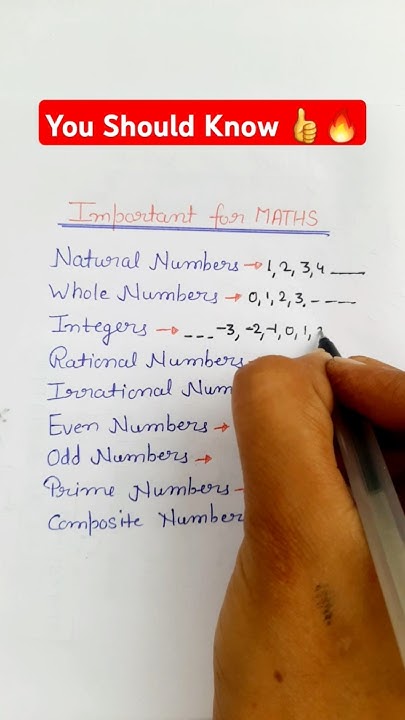 You Should Know 👍🔥
Important for MATHS
Natural Numbers → 1, 2, 3, 4 ___
Whole Numbers → 0, 1, 2, 3, - - - -
Integers → - - - -3, -2, -1, 0, 1, 2
Rational Numbers
Irrational Num
Even Numbers →
Odd Numbers →
Prime Numbers -
Composite Number